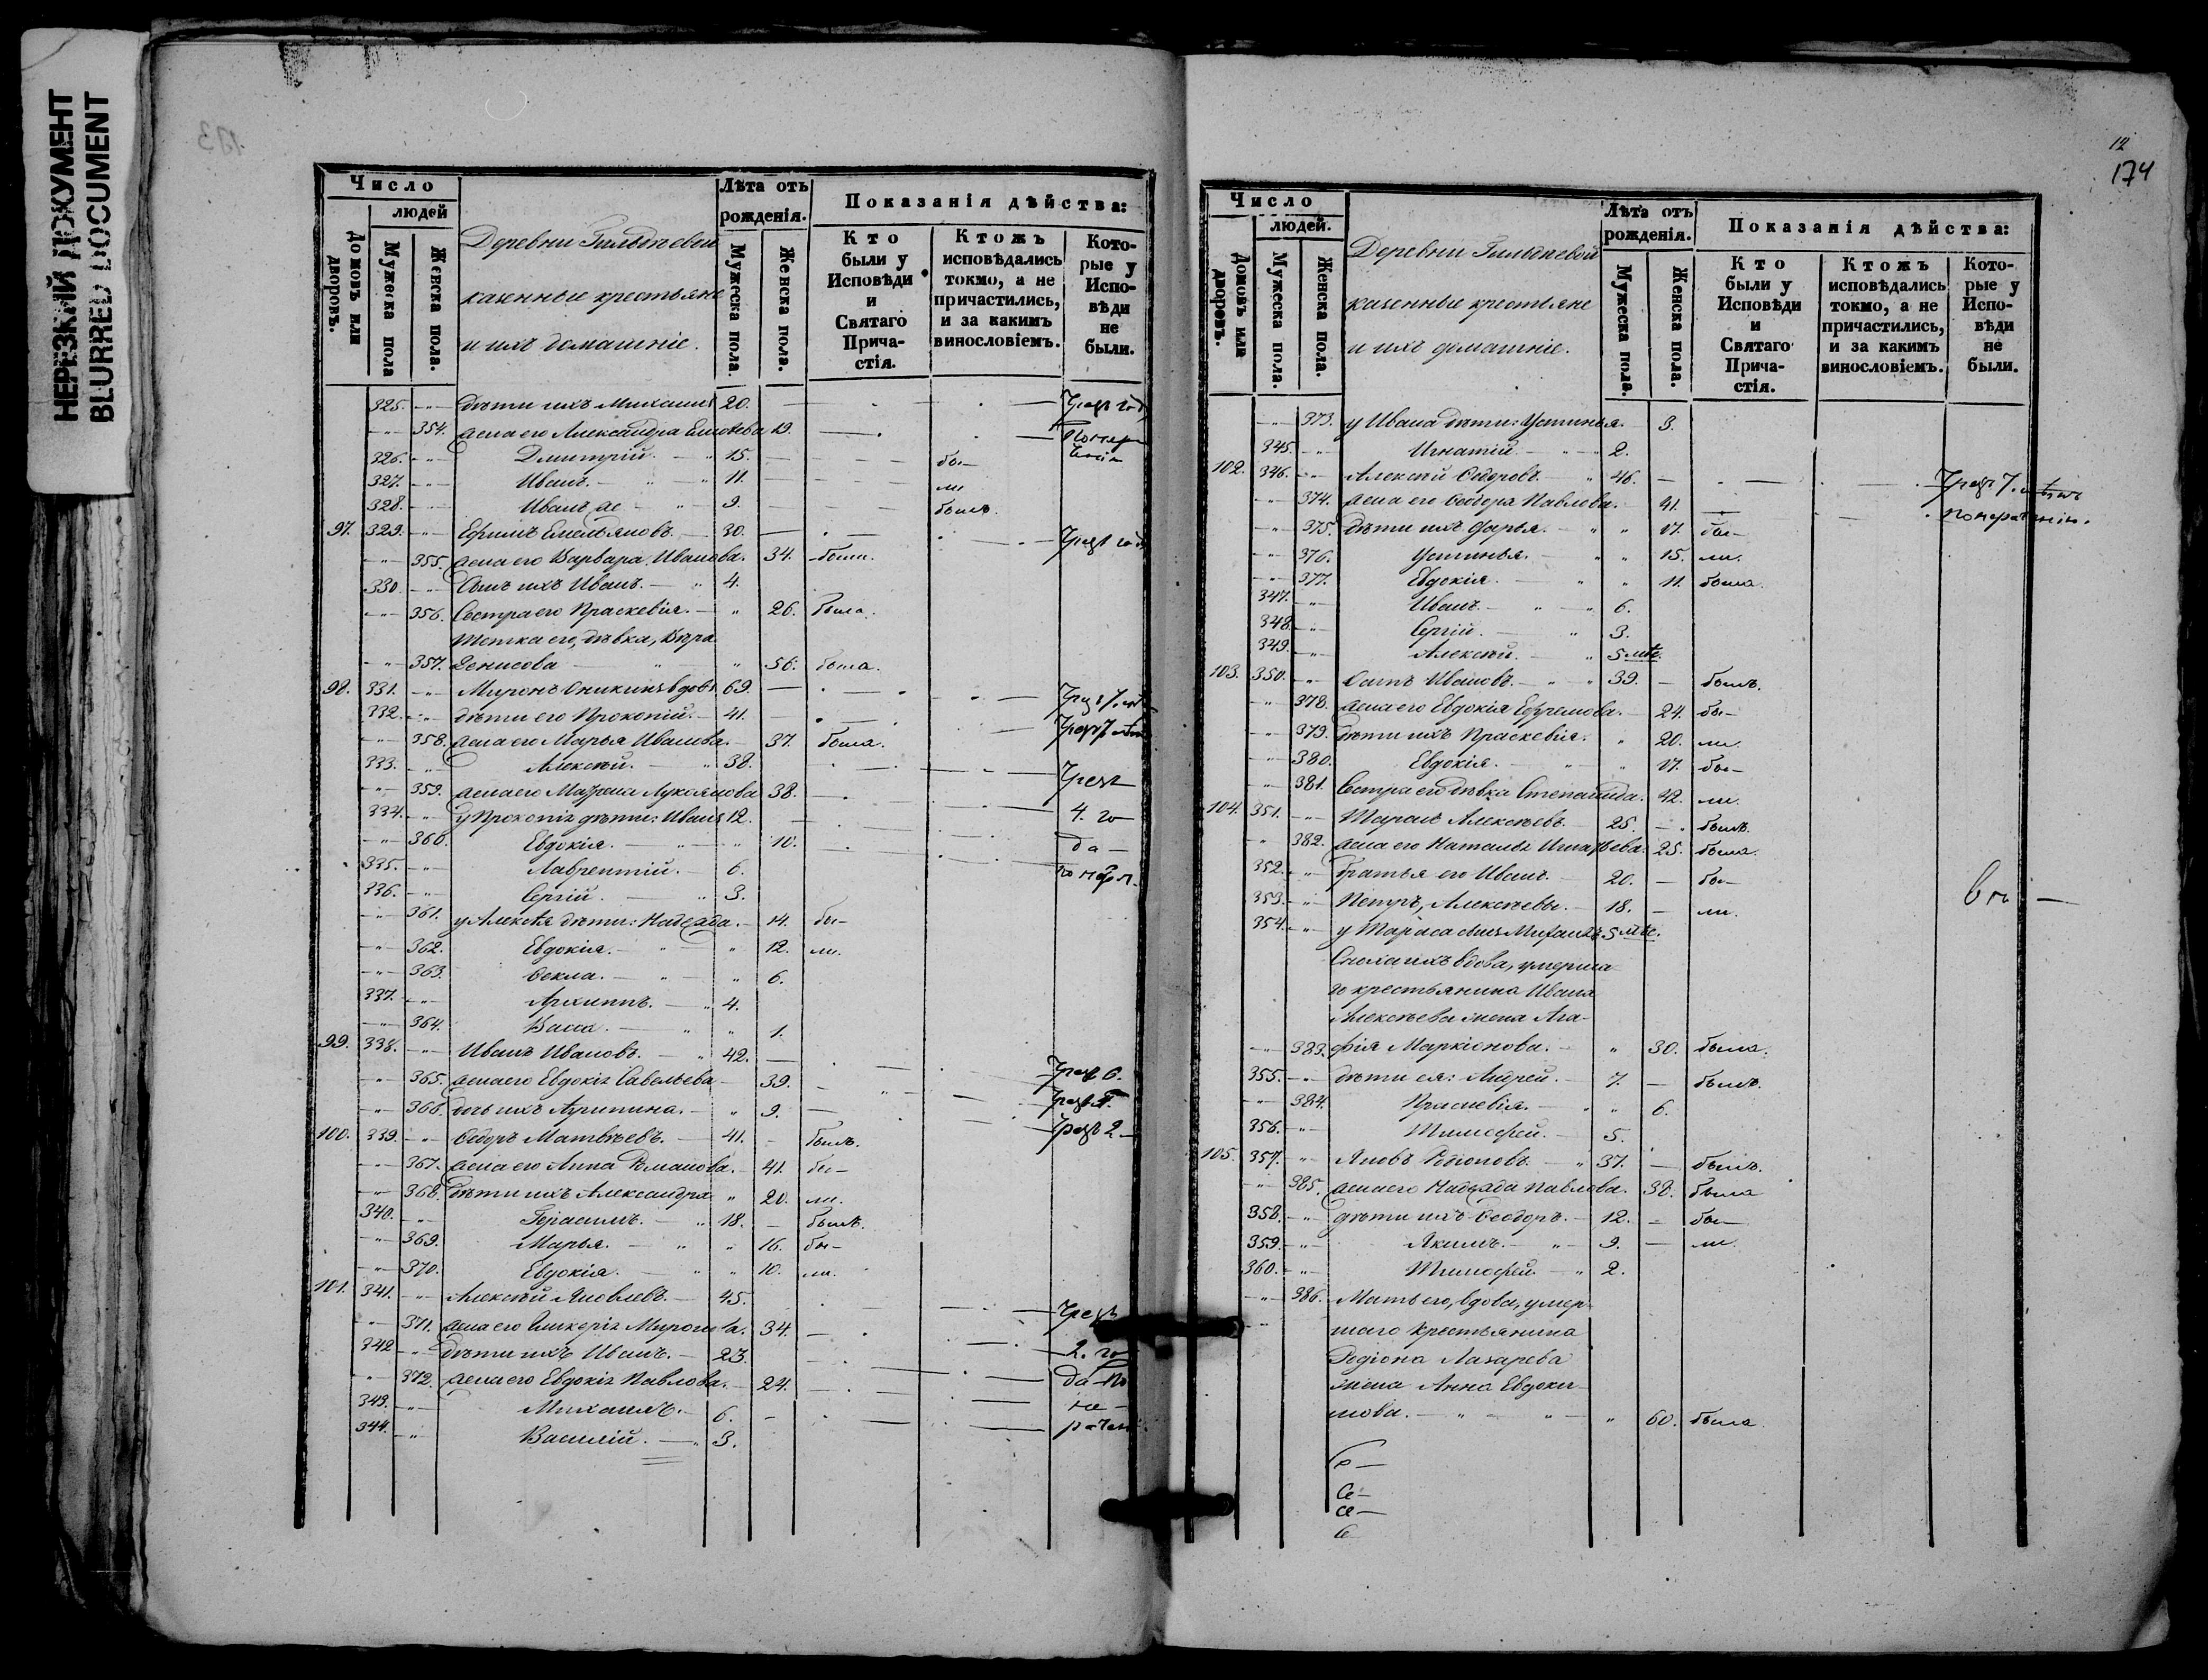 НЕРЕЗКИЙ ДОКУМЕНТ
BLURRED DOCUMENT
173
Число
людей
Домовъ или дворовъ.
Мужеска пола
Женска пола.
Деревни
казенные крестьяне
и ихъ домашніе.
Лѣта отъ рожденія.
Мужеска пола.
Женска пола.
Показанія дѣйства:
Кто были у Исповѣди и Святаго Причастія.
Ктожъ исповѣдались токмо, а не причастились, и за какимъ винословіемъ.
Которые у Исповѣди не были.
325. -"- дѣти ихъ Михаилъ 20. Чрезъ
-"- 354. жена его Александра 19.
326. -"- Дмитрій. 15. бы-
327. -"- Иванъ. 11. ли
328. -"- Иванъ же 9. былъ.
97. 329. -"- Ефимъ Емельяновъ. 30. Чрезъ
-"- 355. жена его Варвара Иванова. 34. была.
330. -"- Сынъ ихъ Иванъ. 4.
-"- 356. Сестра его Праскевія. " 26. Была.
Тетка его, дѣвка, Вѣра
-"- 357. Денисова " 56. была.
98. 331. -"- Миронъ Аникинъ вдовъ 69. Чрезъ 7.
332. -"- дѣти его Прокопій. 41. Чрезъ 7
-"- 358. жена его Марья Иванова. 37. была.
333. -"- Алексѣй. 38.
-"- 359. жена его Матрена Лукоянова 38. Чрезъ
334. -"- у Прокопія дѣти: Иванъ 12. 4. го-
-"- 360. Евдокія. " 10. да-
335. -"- Лаврентій. 6.
336. -"- Сергій. 3.
-"- 361. у Алексѣя дѣти: Надежда. 14. бы-
-"- 362. Евдокія. " 12. ли.
-"- 363. Ѳекла. " 6.
337. -"- Архиппъ. 4.
-"- 364. Васса. " 1.
99. 338. -"- Иванъ Ивановъ. 42. Чрезъ 6.
-"- 365. жена его Евдокія Савельева 39. Чрезъ
-"- 366. дочь ихъ Агрипина. " 9. Чрезъ 2
100. 339. -"- Ѳедоръ Матвѣевъ. 41. былъ.
-"- 367. жена его Анна Романова. 41. бы-
-"- 368. дѣти ихъ Александра " 20. ли.
340. -"- Герасимъ. 18. былъ.
-"- 369. Марья. " 16. бы-
-"- 370. Евдокія. " 10. ли.
101. 341. -"- Алексѣй Яковлевъ. 45. Чрезъ
-"- 371. жена его Гликерія Миронова. 34.
342. -"- дѣти ихъ Иванъ. 23. 2. го
-"- 372. жена его Евдокія Павлова. 24. да по
343. -"- Михаилъ. 6. не-
344. -"- Василій. 3.
12
174
Число
людей.
Домовъ или дворовъ.
Мужеска пола.
Женска пола.
Деревни
казенные крестьяне
и ихъ домашніе.
Лѣта отъ рожденія.
Мужеска пола.
Женска пола.
Показанія дѣйства:
Кто были у Исповѣди и Святаго Причастія.
Ктожъ исповѣдались токмо, а не причастились, и за какимъ винословіемъ.
Которые у Исповѣди не были.
-"- 373. у Ивана дѣти: Устинья. 3.
345. -"- Игнатій. 2.
102. 346. -"- Алексѣй Ѳедоровъ. 46. Чрезъ 7. лѣтъ
-"- 374. жена его Ѳеодора Павлова. 41. по нераченію.
-"- 375. дѣти ихъ Дарья. " 17. бы-
-"- 376. Устинья. " 15. ли.
-"- 377. Евдокія. " 11. была.
347. -"- Иванъ. 6.
348. -"- Сергій. 3.
349. -"- Алексѣй. 5 мѣс.
103. 350. -"- Осипъ Ивановъ. 39. былъ.
-"- 378. жена его Евдокія Ефремова. 24. бы-
-"- 379. дѣти ихъ Праскевія. " 20. ли.
-"- 380. Евдокія. " 17. бы-
-"- 381. Сестра его дѣвка Степанида. 42. ли.
104. 351. -"- Тарасъ Алексѣевъ. 25. былъ.
-" 382. жена его Наталья Игнатьева. 25. была.
352. -"- братья его Иванъ. 20. бы-
353. -"- Петръ, Алексѣевы. 18. ли.
354. -"- у Тараса сынъ Михаилъ 5 мѣс.
Сноха ихъ вдова, умерша
го крестьянина Ивана
Алексѣева жена Ага-
-"- 383. фія Маркіонова. " 30. была.
355. -"- дѣти ея: Андрей. 7. былъ.
-"- 384. Праскевія. " 6.
356. -"- Тимофей. 5.
105. 357. -"- Яковъ Родіоновъ. 37. былъ.
-"- 385. жена его Надежда Павлова. 38. была
358. -"- дѣти ихъ Ѳеодоръ. 12. бы-
359. -"- Якимъ. 9. ли.
360. -"- Тимофей. 2.
-"- 386. Мать его, вдова, умер
шаго крестьянина
Родіона Лазарева
жена Анна Евдоки-
мова. " 60. была